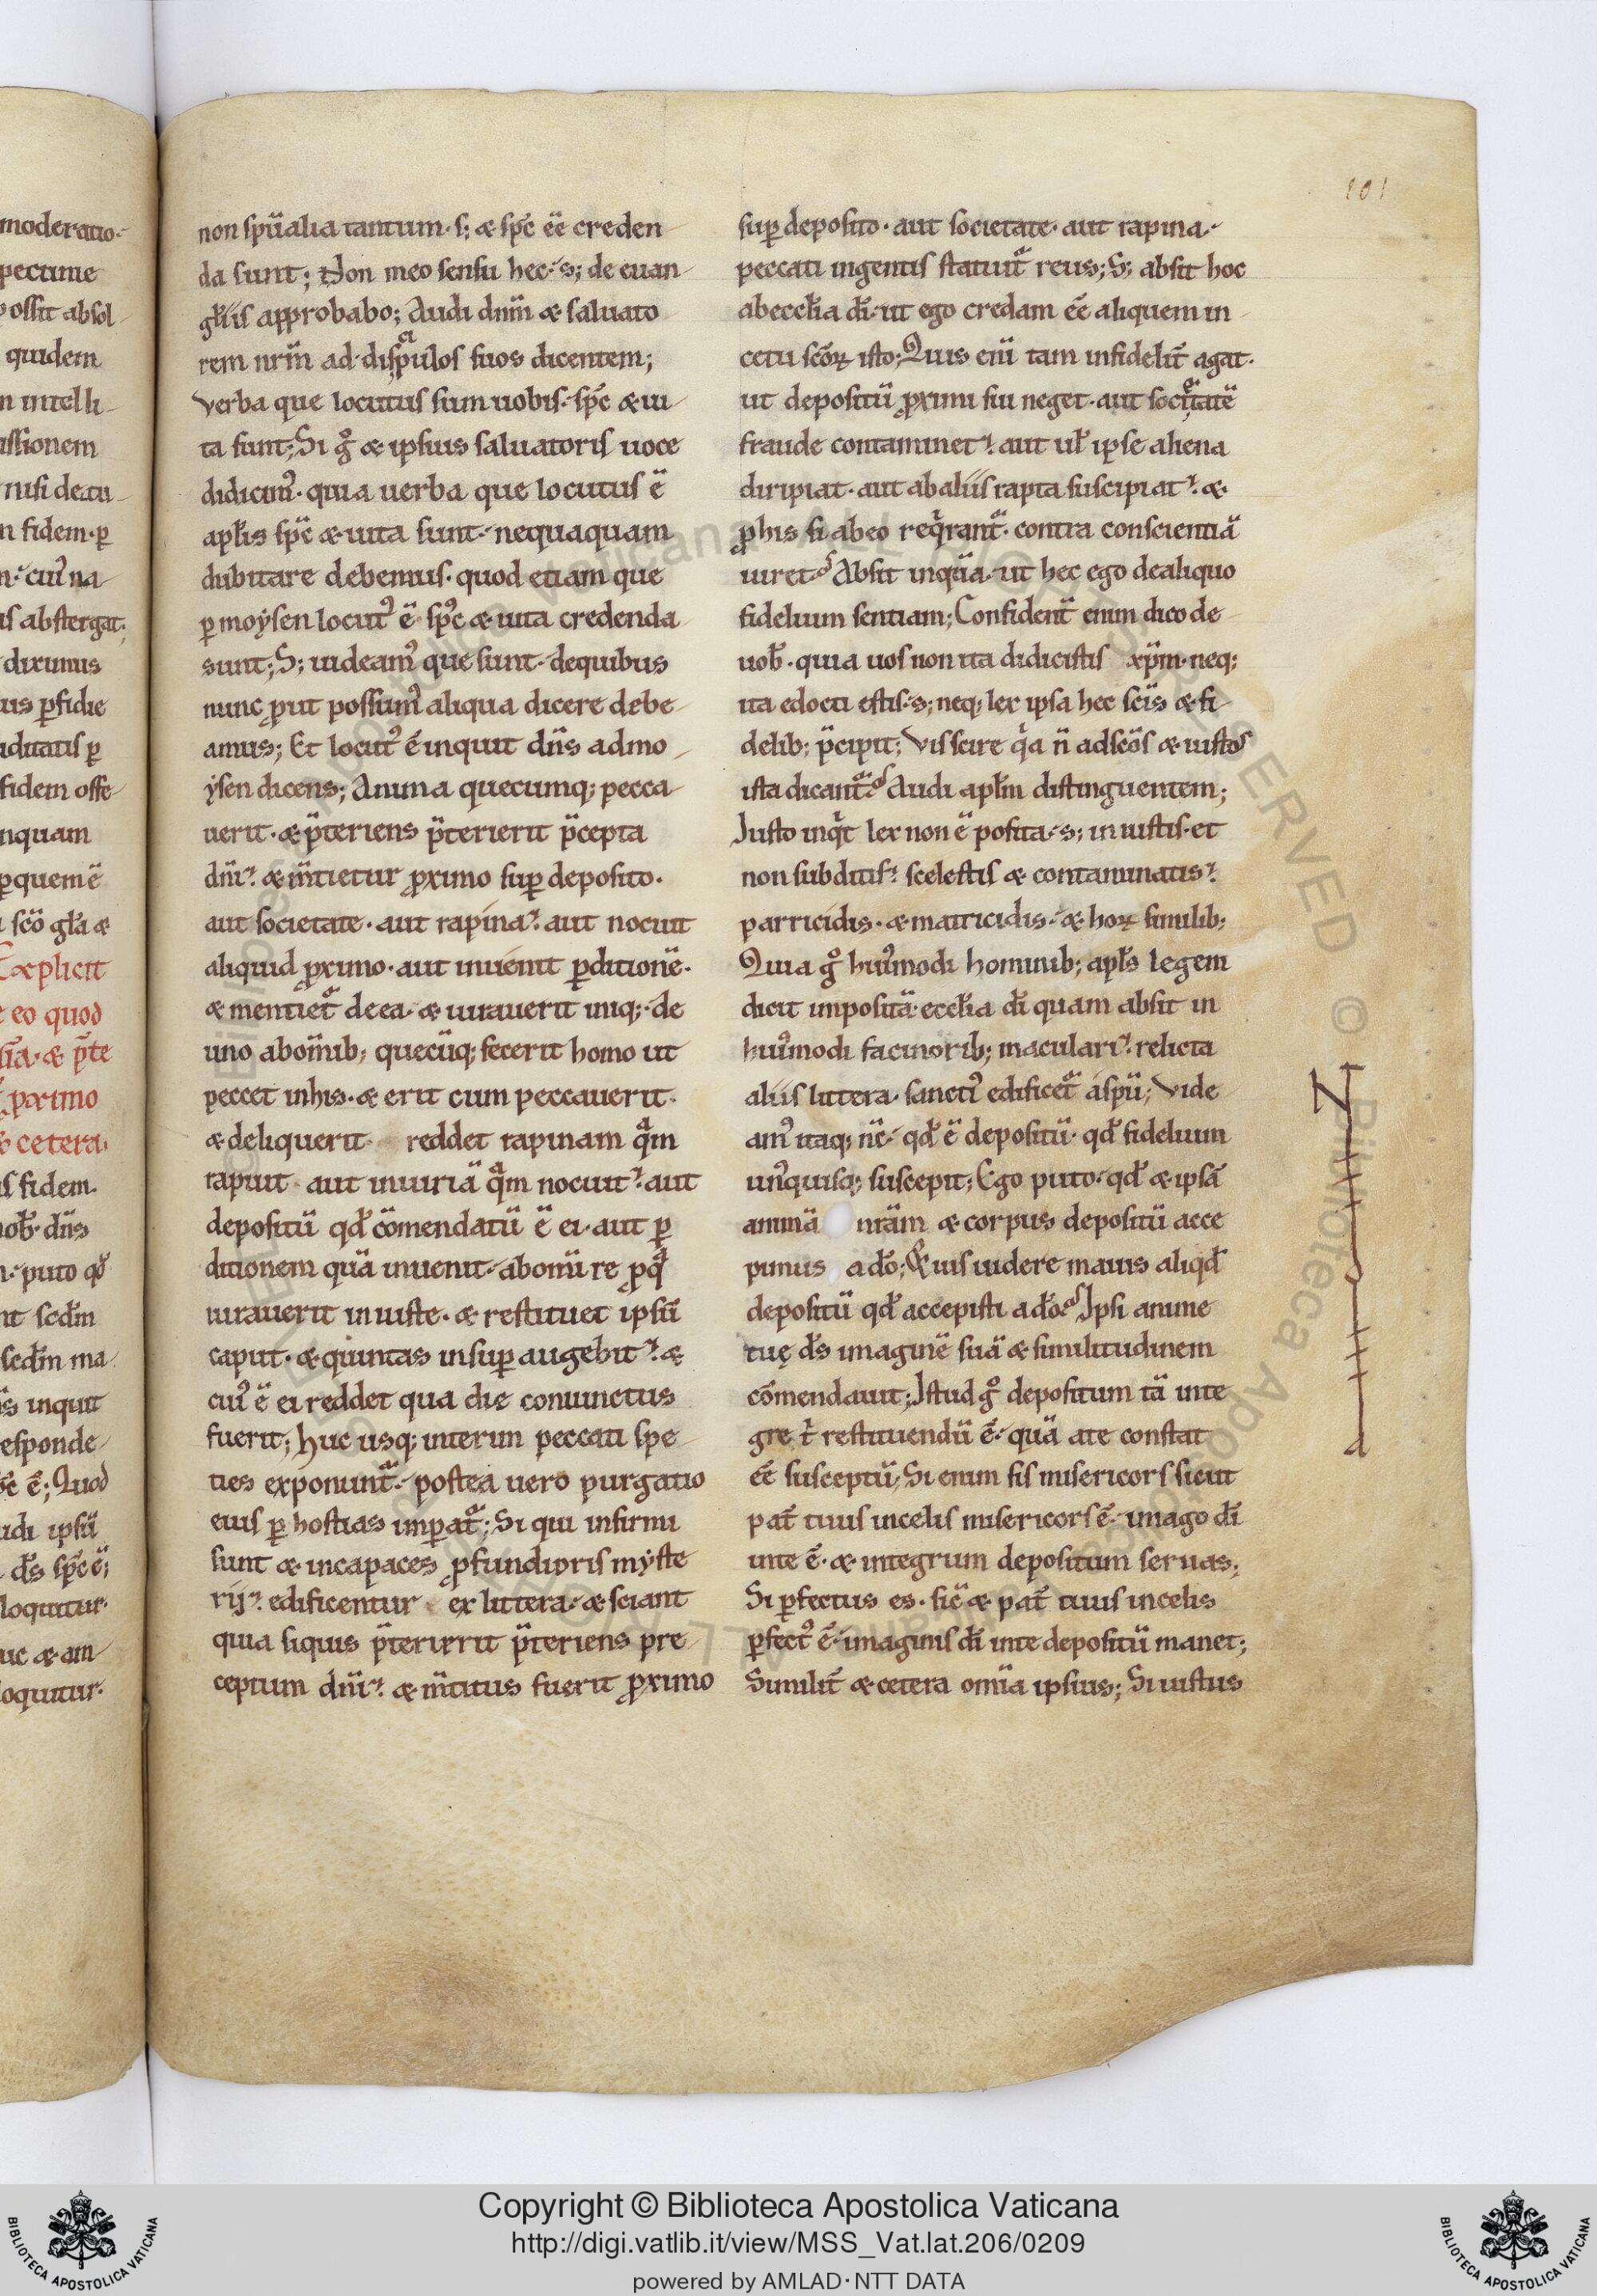 moderatio-
pectime
possit absol-
quidem
n intelli-
ussionem
nisi de tu-
n fidem· ꝑ
n·´ cui᷒ na-
us abstergat;
diximus
us ꝑfidie
iditatis ꝑ
fidem offe-
nquam
ꝑ quem ē
scō gl̄a æ
Explicit
eo quod
æ p̄te
ꝓximo
& cetera.
s fidem.
uob̄· dn̄s
n·´ puto qd̄
nt scd̄m
scd̄m ma-
n̄s inquit
esponde-
ē; Quod
udi ipsū
d̄s sp̄c ē;
loquitur·
uc æ am-
oquitur·
101
non sp̄ualia tantum· s; æ sp̄c ēē creden-
da sunt; Non meo sensu hec·´ s; de euan-
gl̄iis approbabo; Audi dn̄m æ saluato-
rem nrm̄ ad discipulos suos dicentem;
Verba que locutus sum uobis·´ sp̄c æ ui-
ta sunt; Si gͦ æ ipsius saluatoris uoce
didicim᷒· quia uerba que locutus ē
apl̄is sp̄c æ uita sunt·´ nequaquam
dubitare debemus· quod etiam que
ꝑ moẏsen locut᷒ ē sp̄c æ uita credenda
sunt; S; uideam᷒ que sunt·´ de quibus
nunc ꝓut possum᷒ aliqua dicere debe-
amus; Et locut᷒ ē inquit dn̄s ad mo-
ẏsen dicens; Anima quecumq; pecca-
uerit· æ p̄teriens p̄terierit p̄cepta
dn̄i·´ æ m̄tietur ꝓximo suꝑ deposito·
aut societate· aut rapina·´ aut nocuit
aliquid ꝓximo· aut inuenit ꝑditionē·
æ mentiet᷑ de ea· æ iurauerit iniq;·´ de
uno ab om̄ib; quecūq; fecerit homo ut
peccet in his· æ erit cum peccauerit·
æ deliquerit reddet rapinam qͣm
rapuit aut iniuriā qͣm nocuit·´ aut
depositū qd̄ cōmendatū ē ei· aut ꝑ-
ditionem quā inuenit·´ ab omni re ꝓ qͣ
iurauerit iniuste· æ restituet ipsū
caput· æ quintas insuꝑ augebit·´ æ
cui᷒ ē ei reddet qua die conuinctus
fuerit; Huc usq; interim peccati spe-
ties exponunt᷑·´ postea uero purgatio
eius ꝑ hostias imꝑat᷑; Si qui infirmi
sunt æ incapaces ꝓfundioris mẏste-
rij·´ edificentur ex littera·´ æ sciant
quia siquis p̄terierit p̄teriens pre-
ceptum dn̄i·´ æ m̄titus fuerit ꝓximo
suꝑ deposito· aut societate· aut rapina·´
peccati ingentis statuit᷑ reus; S; absit hoc
ab eccl̄ia dī· ut ego credam ēē aliquem in
cetu scōꝝ isto; Quis enī tam infidelit̄ agat·
ut depositū ꝓximi sui neget· aut societatē
fraude contaminet·´ aut ul̄ ipse aliena
diripiat· aut ab aliis rapta suscipiat·´ æ
ꝓ his si ab eo reqͥrant᷑· contra conscientiā
iuret? Absit inquā· ut hec ego de aliquo
fidelium sentiam; Confident̄ enim dico de
uob̄· quia uos non ita didicistis xp̄m· neq;
ita edocti estis·´ s; neq; lex ipsa hec scīs æ fi-
delib; p̄cipit; Vis scire qͥa n̄ ad scōs æ iustos
ista dicant᷑? Audi apl̄m distinguentem;
Iusto inqͥt lex non ē posita·´ s; iniustis· et
non subditis·´ scelestis æ contaminatis·´
parricidis· æ matricidis·´ æ hoꝝ similib;
Quia gͦ hui᷒modi hominib; apl̄s legem
dicit impositā· eccl̄ia dī quam absit in
hui᷒modi facinorib; maculari·´ relicta
aliis littera· sancti᷒ edificet᷑ a sp̄u; Vide-
am᷒ itaq; nc̄·´ qd̄ ē depositū· qd̄ fidelium
un᷒quisq; suscepit; Ego puto·´ qd̄ æ ipsā
animā nrām æ corpus depositū acce-
pimus a dō; Et uis uidere maius aliqd̄
depositū qd̄ accepisti a dō? Ipsi anime
tuę d̄s imaginē suā æ similitudinem
cōmendauit; Istud gͦ depositum tā inte-
gre t̄ restituendū ē·´ quā a te constat
ēē susceptū; Si enim sis misericors sicut
pat̄ tuus in celis misericors ē·´ imago dī
in te ē· æ integrum depositum seruas;
Si ꝑfectus es· sic̄ æ pat̄ tuus in celis
ꝑfect᷒ ē·´ imaginis dī in te depositū manet;
Similit̄ æ cetera om̄ia ipsius; Si iustus
Copyright © Biblioteca Apostolica Vaticana
http://digi.vatlib.it/view/MSS_Vat.lat.206/0209
powered by AMLAD·NTT DATA
BIBLIOTECA APOSTOLICA VATICANA
BIBLIOTECA APOSTOLICA VATICANA